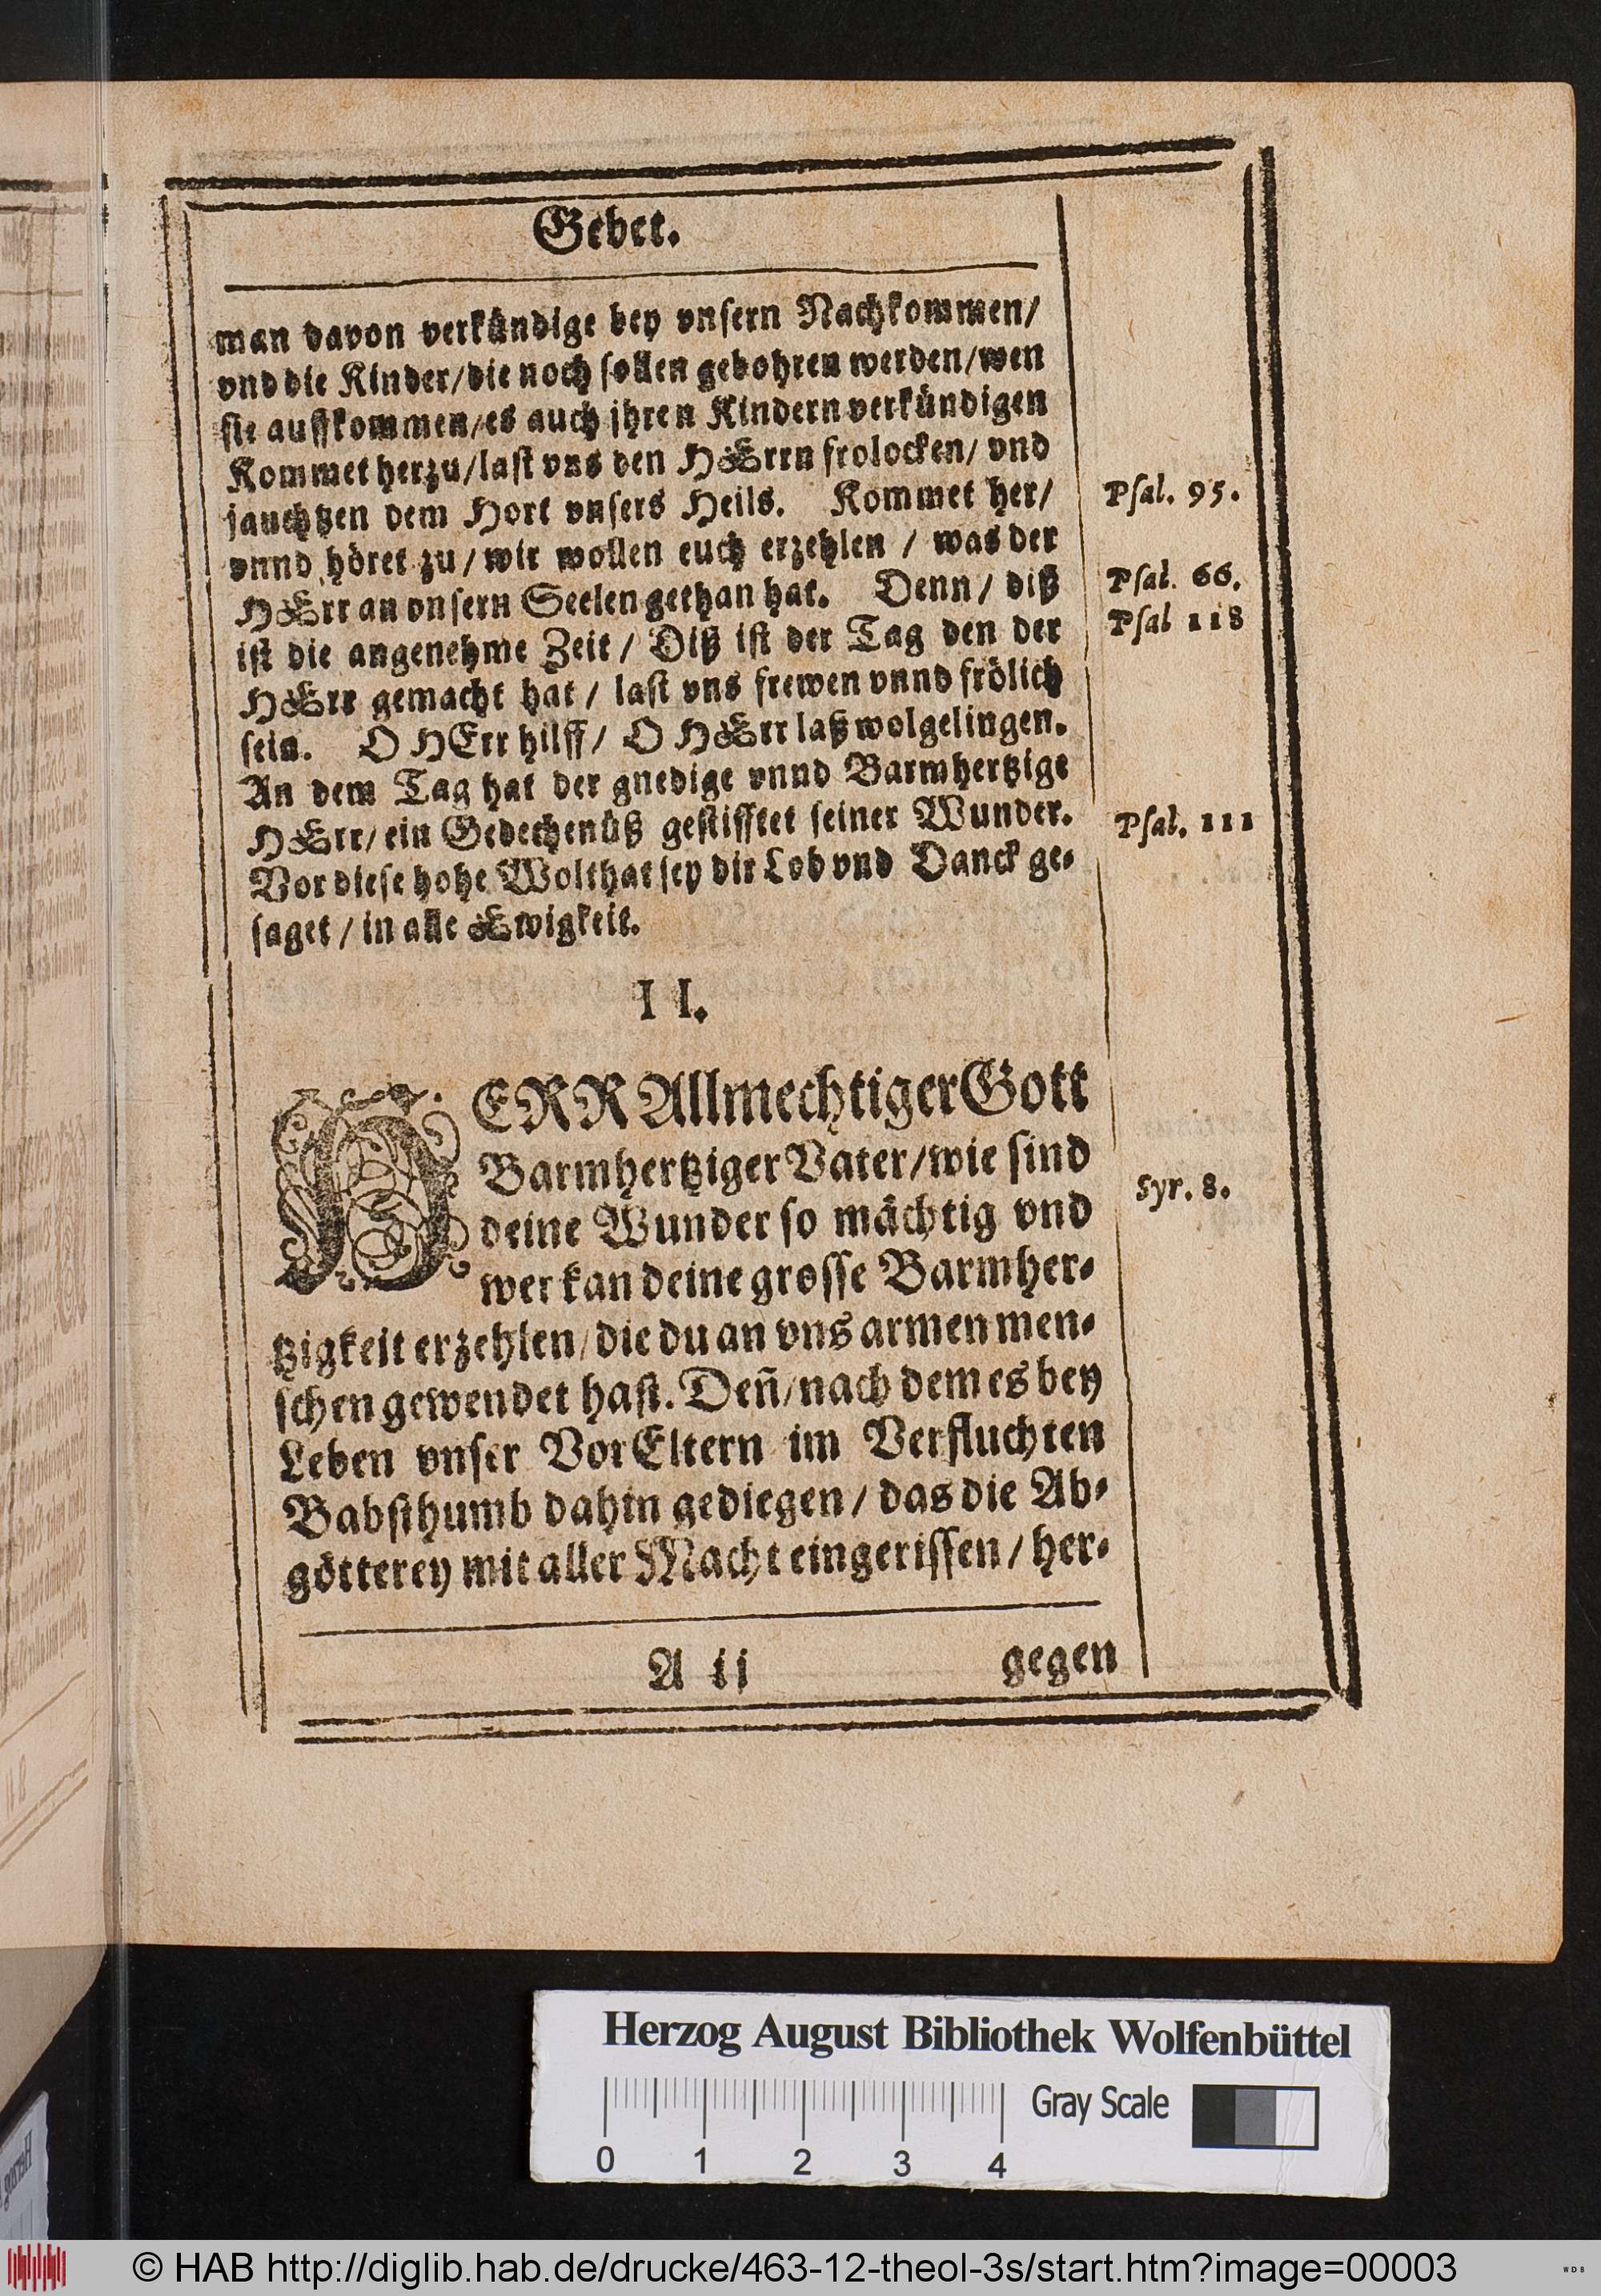 Gebet.
man davon verkündige bey vnsern Nachkommen/
vnd die Kinder/die noch sollen gebohren werden/wen
sie auffkommen/es auch jhren Kindern verkündigen
Kommet herzu/last vns den HErrn frolocken/ vnd
jauchtzen dem Hort vnsers Heils. Kommet her/
vnnd höret zu/wir wollen euch erzehlen / was der
HErr an vnsern Seelen gethan hat. Denn/ diß
ist die angenehme Zeit / Diß ist der Tag den der
HErr gemacht hat / last vns frewen vnnd frölich
sein. O HErr hilff/ O HErr laß wolgelingen.
An dem Tag hat der gnedige vnnd Barmhertzige
HErr/ein Gedechenüß gestifftet seiner Wunder.
Vor diese hohe Wolthat sey dir Lob vnd Danck ge-
saget / in alle Ewigkeit.
Psal. 95.
Psal. 66.
Psal 118
Psal. 111
II.
HERR Allmechtiger Gott
Barmhertziger Vater/wie sind
deine Wunder so mächtig vnd
wer kan deine grosse Barmher-
tzigkeit erzehlen/die du an vns armen men-
schen gewendet hast. Deñ/nach dem es bey
Leben vnser VorEltern im Verfluchten
Babsthumb dahin gediegen / das die Ab-
götterey mit aller Macht eingerissen / her-
Syr. 8.
A ij
gegen
Herzog August Bibliothek Wolfenbüttel
0 1 2 3 4
Gray Scale
© HAB http://diglib.hab.de/drucke/463-12-theol-3s/start.htm?image=00003